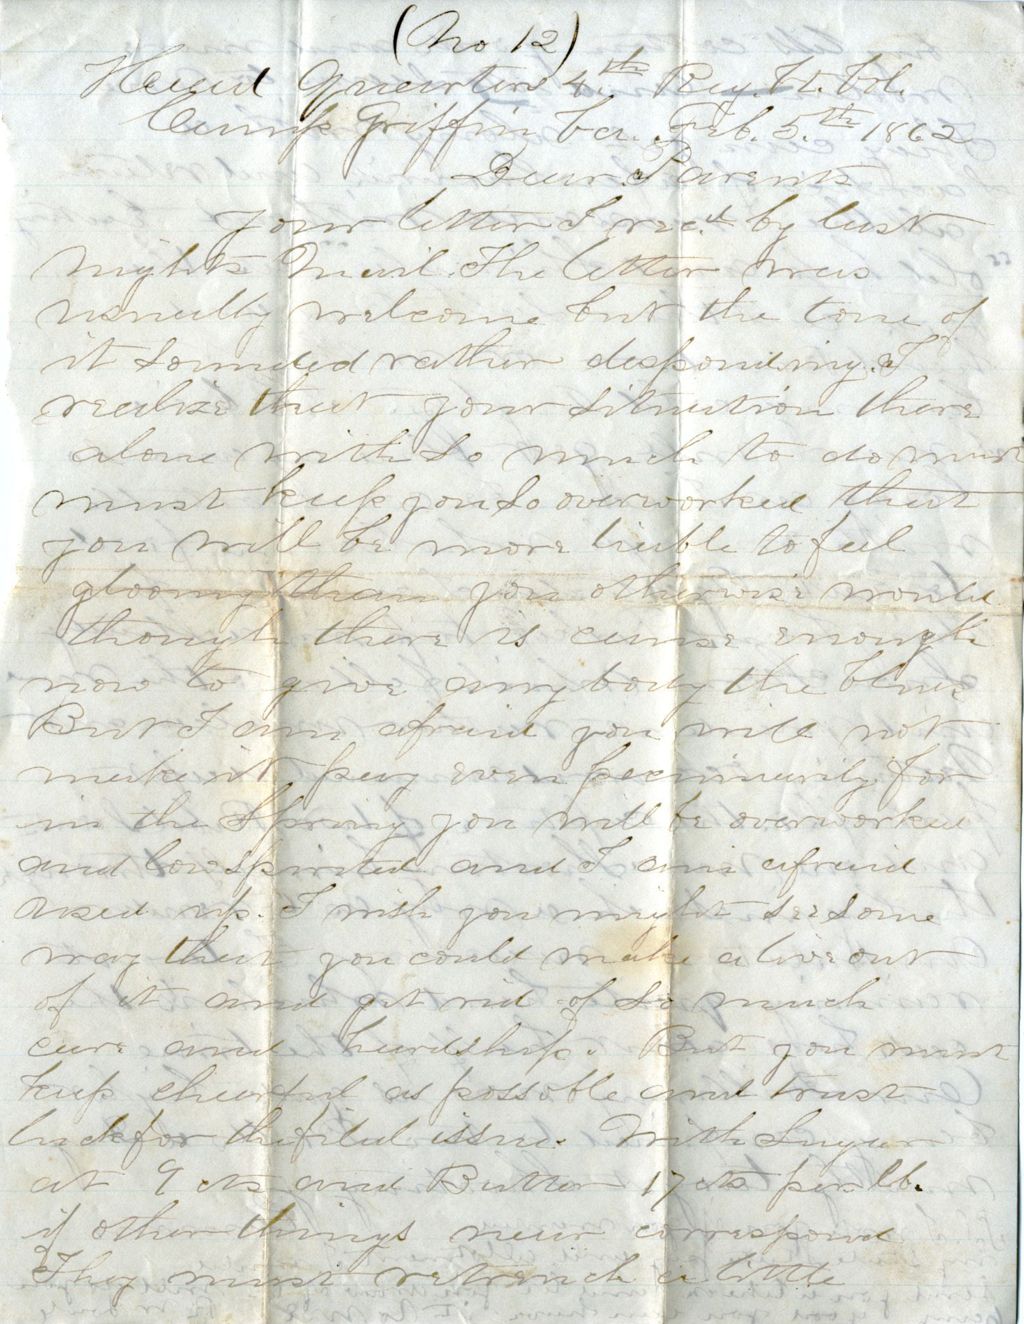 (No 12)
Head Quarters 4th Reg. Vt. Vol.
Camp Griffin Va. Feb. 5th 1862
Dear Parents
Your letter I rec.d by last
nights Mail. The letter was
usually welcome but the tone of
it sounded rather desponding. I
realize that your situation there
alone with so much to do must
must keep you so overworked that
you will be more liable to feel
gloomy than you otherwise would
though there is cause enough
now to give anybody the blues
But I am afraid you will not
make it pay even pecuniarily for
in the Spring you will be overworked
and lowspirited and I am afraid
used up. I wish you might see some
way that you could make a live out
of it and get rid of so much
care and hardship. But you must
keep cheerful as possoble and trust
luck for the final issue. With Sugar
at 9 cts and Butter 17 cts per lb.
if other things near correspond
They must retrench a little